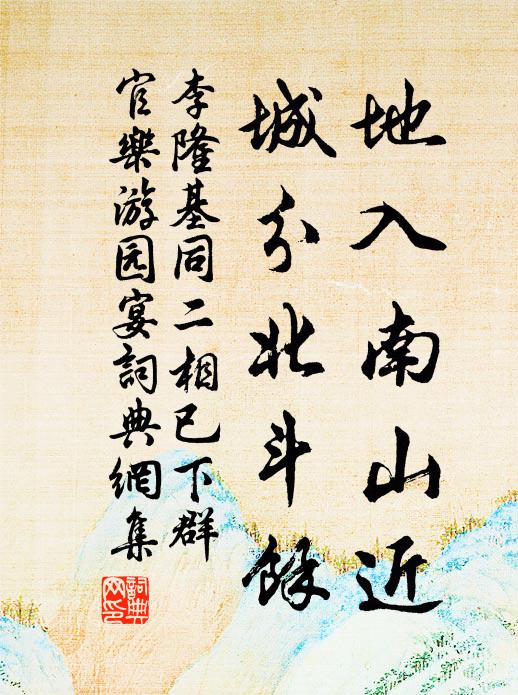 地入南山近
城分北斗餘
李隆基同二相已下群
官樂游园宴詞典網集
詞典網印